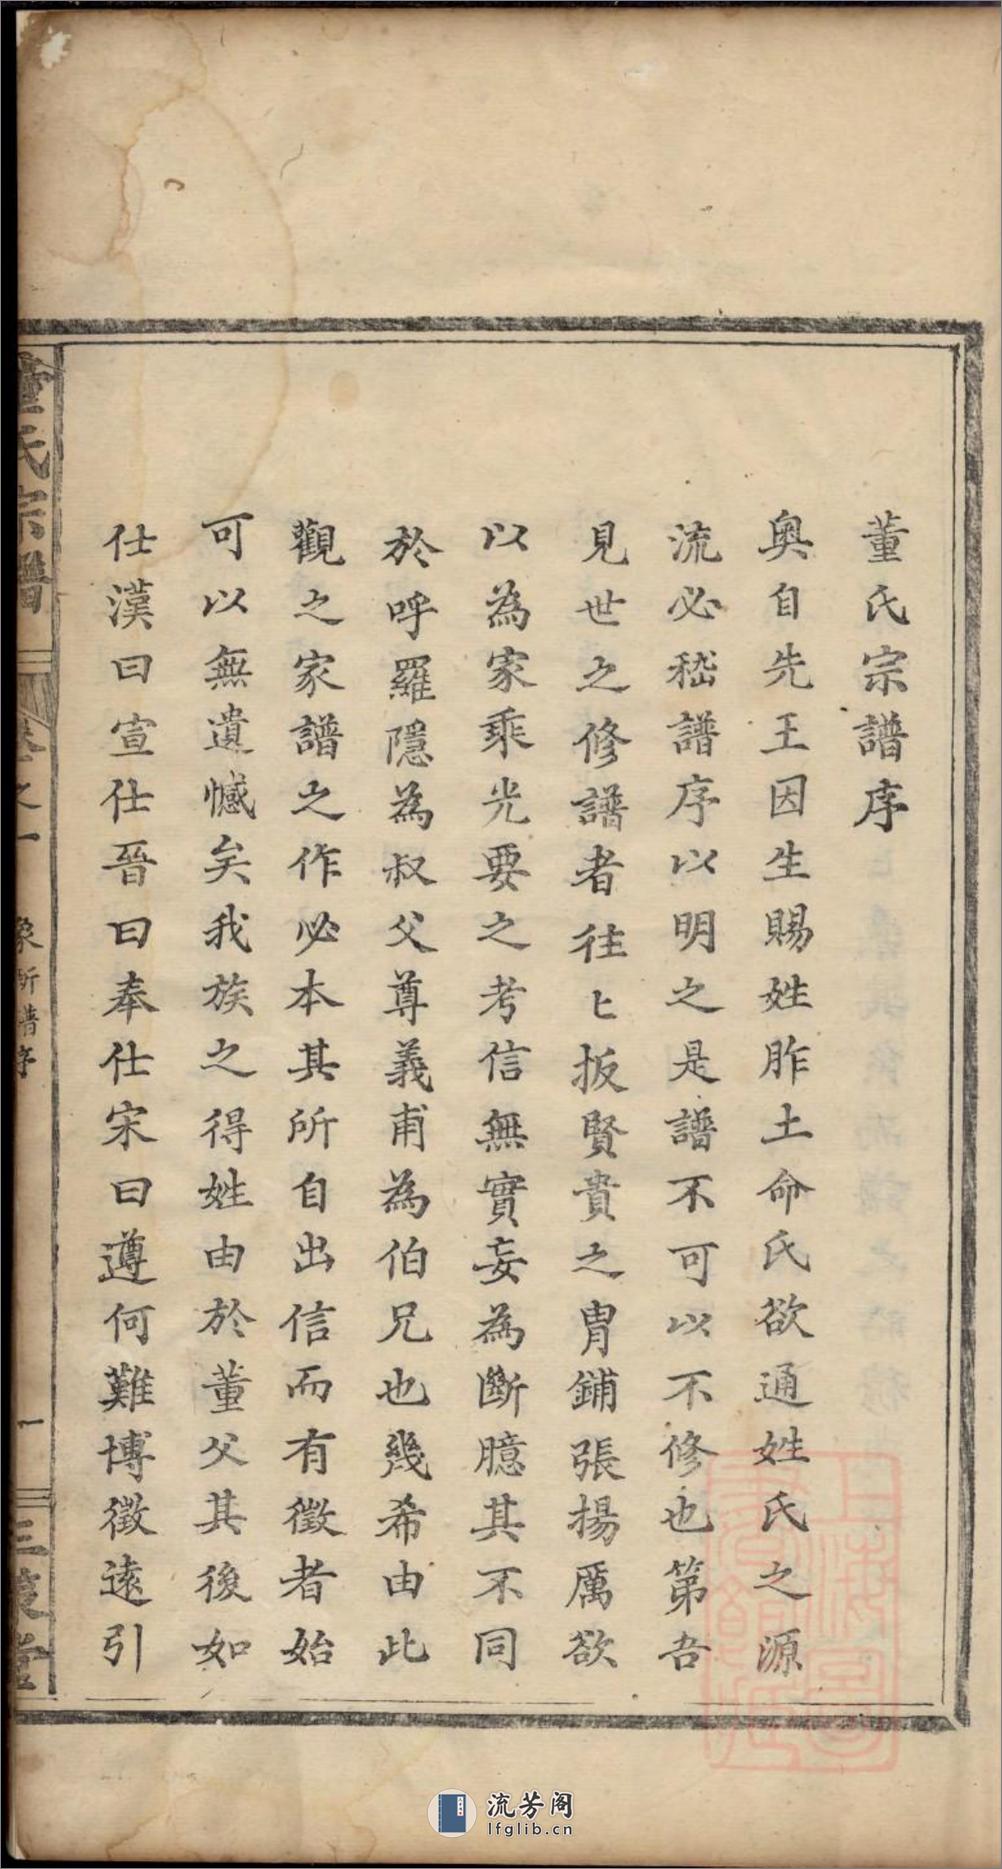 董氏宗譜序
奥自先王因生賜姓胙土命氏欲通姓氏之源
流必嵇譜序以明之是譜不可以不修也第吾
見世之修譜者往〻扳賢貴之胄鋪張揚厲欲
以為家乘光要之考信無實妄為斷臆其不同
於呼羅隱為叔父尊義甫為伯兄也幾希由此
觀之家譜之作必本其所自出信而有徵者始
可以無遺憾矣我族之得姓由於董父其後如
仕漢曰宣仕晉曰奉仕宋曰遵何難博徵遠引
董氏宗譜
卷之一
譜序
一
三策堂
流芳阁
lfglib.cn